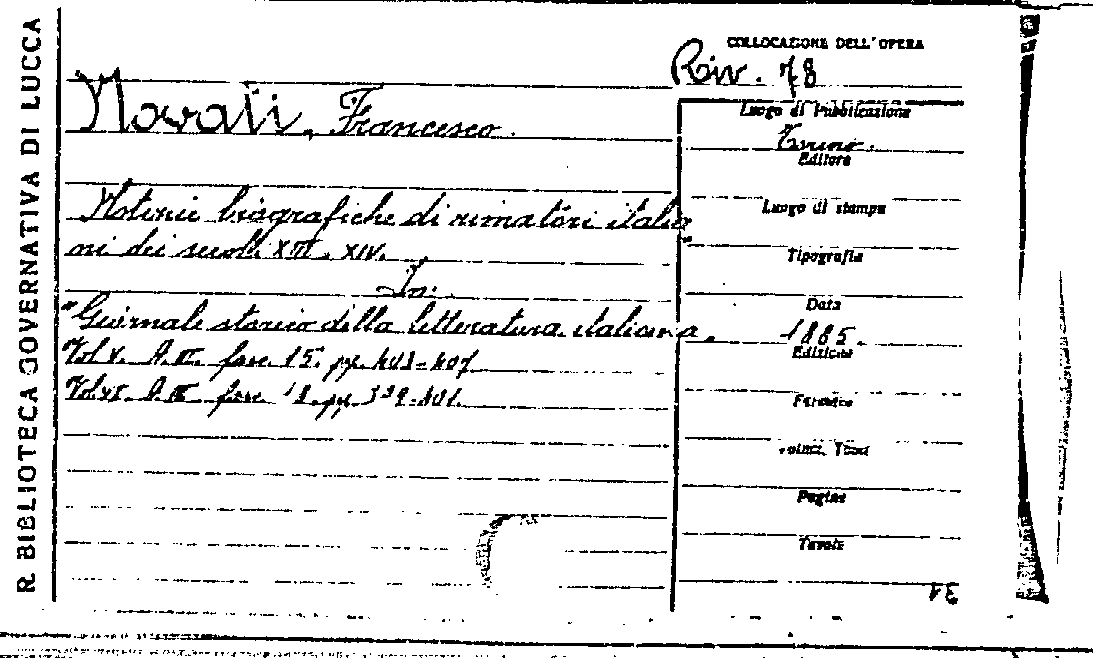 R. BIBLIOTECA GOVERNATIVA DI LUCCA
COLLOCAZIONE DELL'OPERA
Riv. 78
Novati, Francesco.
Notizie biografiche di rimatori italia
ni dei secoli XIII. XIV.
In:
"Giornale storico della letteratura italiana.
Vol V. A. III. fasc. 15. pp. 403-407
Vol VI. A. III fasc. 18. pp. 399-401.
Luogo di Pubblicazione
Torino.
Editore
Luogo di stampa
Tipografia
Data
1885.
Edizione
Formato
Volumi, Tomi
Pagine
Tavole